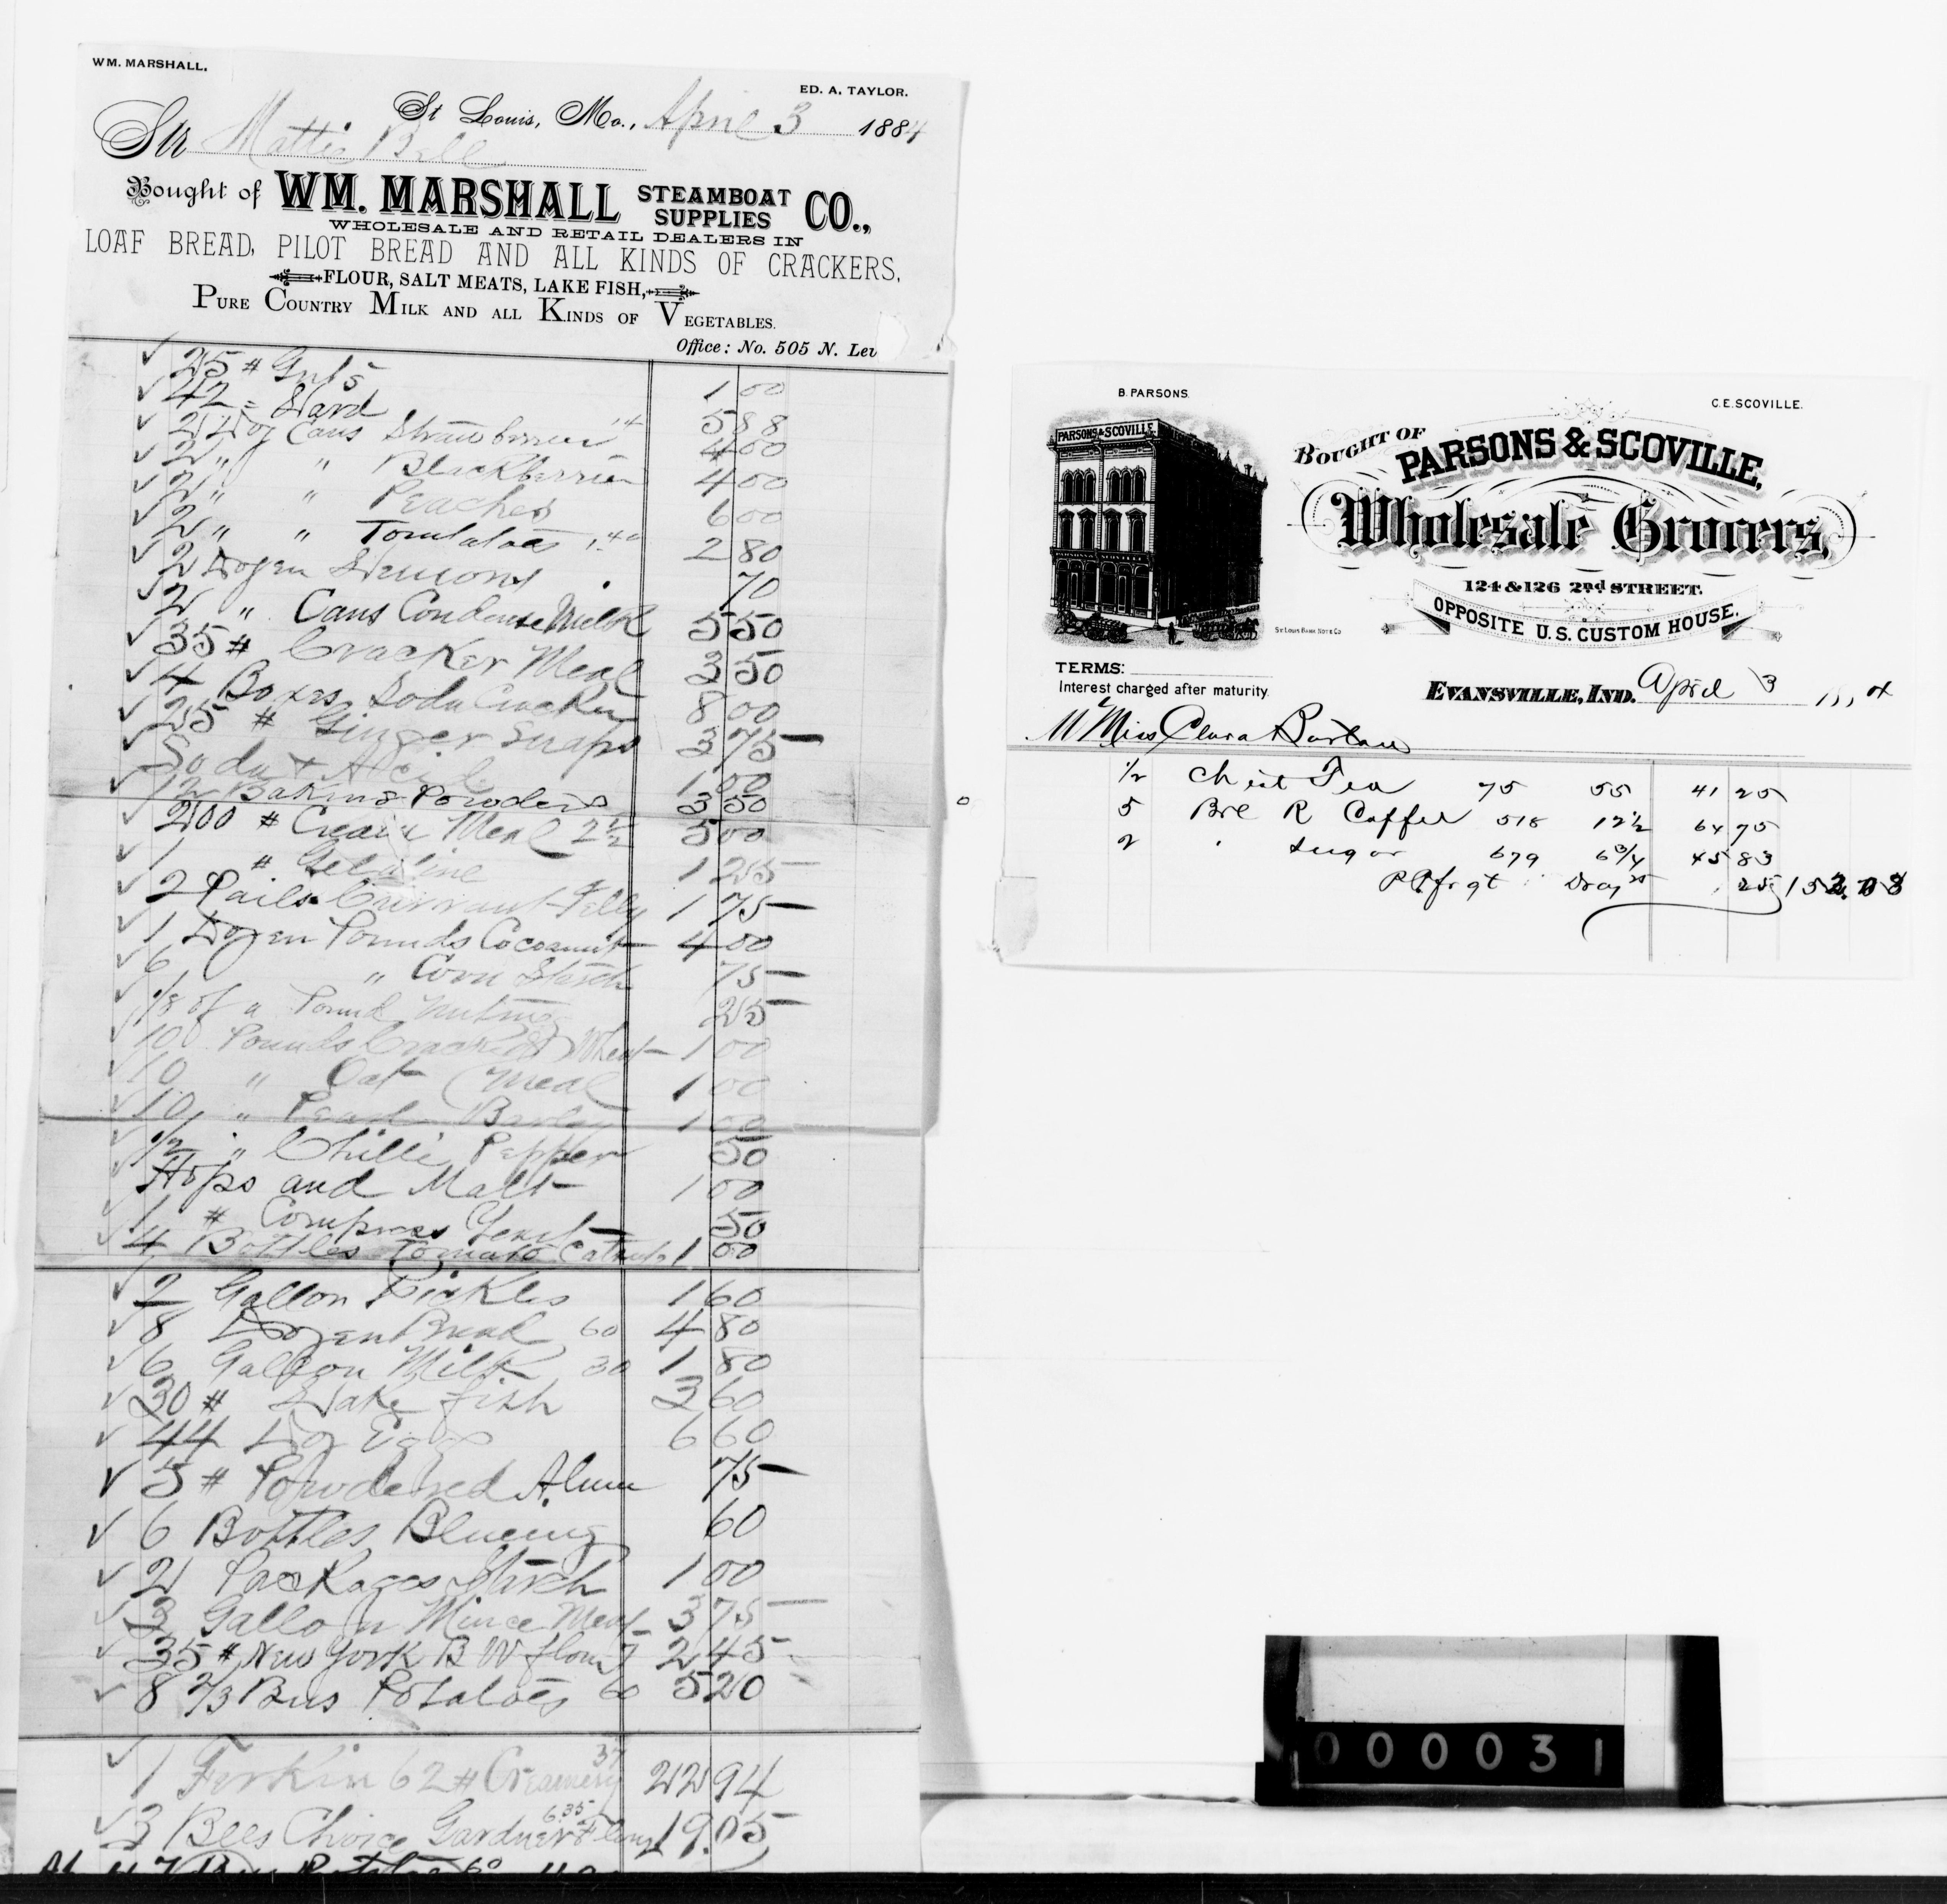 WM. MARSHALL.
ED. A. TAYLOR.
St Louis, Mo., April 3 1884
Str Mattie Bell
Bought of WM. MARSHALL STEAMBOAT SUPPLIES CO.,
WHOLESALE AND RETAIL DEALERS IN
LOAF BREAD, PILOT BREAD AND ALL KINDS OF CRACKERS,
FLOUR, SALT MEATS, LAKE FISH,
PURE COUNTRY MILK AND ALL KINDS OF VEGETABLES.
Office: No. 505 N. Lev
25 # 1 00
42 = Lard 14 5 88
2 Doz Cans Strawberries 4 00
2 " " Blackberries 4 00
2 " " Peaches 6 00
2 " " Tomatatoes 1.40 2 80
2 Dozen Lemons 70
2 " Cans Condense Milk 5 50
35 # Cracker Meal 3 50
4 Boxes Soda Cracker 8 00
25 # Ginger Snaps 3 75
Soda & Acid 1 00
12 Baking Powders 3 50
200 # Cream Meal 2 1/2 5 00
1 # Gelatine 1 25
2 Pails Currant Jelly 1 75
1 Dozen Pounds Cocoanut 4 00
6 " Corn Starch 75
1/8 of a Pound Nutmeg 25
10 Pounds Cracked Wheat 1 00
10 " Oat Meal 1 00
10 " Pearl Barley 1 00
1/2 " Chilli Pepper 50
Hops and Malt 1 00
1 # Compress Yeast 50
4 Bottles Tomato Catsup 1 00
2 Gallon Pickles 1 60
8 Dozen Bread 60 4 80
6 Gallon Milk 30 1 80
30 # Lake fish 3 60
44 Doz Eggs 6 60
5 # Powdered Alum 75
6 Bottles Blueing 60
2 Packages Starch 1 00
3 Gallon Mince Meat 3 75
35 # New York B W flour 7 2 45
8 2/3 Bus Potatoes 60 5 20
1 Firkin 62 # Creamery 37 22 94
3 Bbls Choice Gardner Flour 6.35 19.05
B. PARSONS.
C. E. SCOVILLE.
PARSONS & SCOVILLE
BOUGHT OF PARSONS & SCOVILLE,
Wholesale Grocers,
124 & 126 2nd STREET.
OPPOSITE U.S. CUSTOM HOUSE.
St Louis Bank Note Co
TERMS:
Interest charged after maturity.
EVANSVILLE, IND. April 3 1884
M Miss Clara Barton
1/2 Chest Tea 75 55 41 25
5 Bbl R Coffee 518 12 1/2 64 75
2 " Sugar 679 6 3/4 45 83
PP frgt Dray 25 152.08
000031